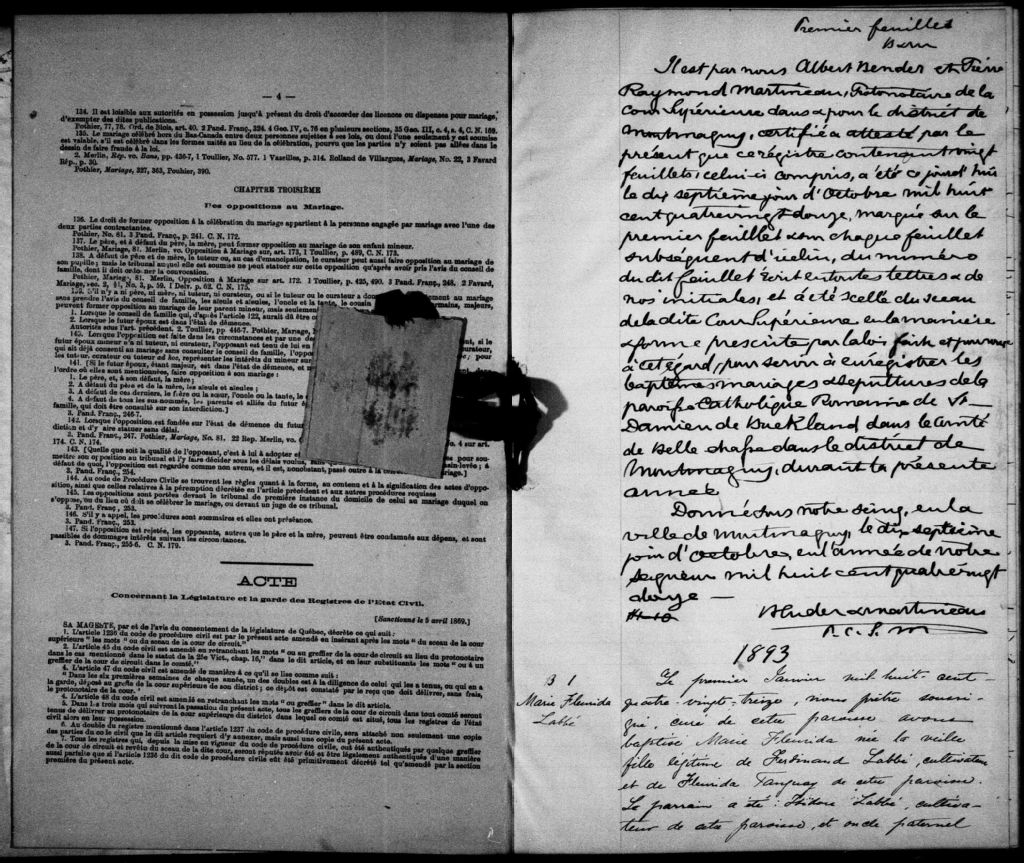 — 4 —
134. Il est loisible aux autorités en possession jusqu'à présent du droit d'accorder des licences ou dispenses pour mariage,
d'exempter des dites publications.
Pothier, 77, 78. Ord. de Blois, art. 40. 2 Pand. Franç., 324. 4 Geo. IV, c. 76 en plusieurs sections, 35 Geo. III, c. 4, s. 4, C. N. 169.
135. Le mariage célébré hors du Bas-Canada entre deux personnes sujettes à ses lois, ou dont l'une seulement y est soumise
est valable, s'il est célébré dans les formes usitées au lieu de la célébration, pourvu que les parties n'y soient pas allées dans le
dessin de faire fraude à la loi.
2. Merlin, Rep. vo. Bans, pp. 436-7, 1 Toullier, No. 577. 1 Vazeilles, p. 314. Rolland de Villargues, Mariage, No. 22, 3 Favard
Rép., p. 30.
Pothier, Mariage, 327, 363, Pouhier, 390.
CHAPITRE TROISIÈME
Des oppositions au Mariage.
136. Le droit de former opposition à la célébration du mariage appartient à la personne engagée par mariage avec l'une des
deux parties contractantes.
Pothier, No. 81. 3 Pand. Franç., p. 241. C. N. 172.
137. Le père, et à défaut du père, la mère, peut former opposition au mariage de son enfant mineur.
Pothier, Mariage, 81. Merlin, vo. Opposition à Mariage sur art. 173, 1 Toullier, p. 489, C. N. 173.
138. A défaut de père et de mère, le tuteur ou, au cas d'émancipation, le curateur peut aussi faire opposition au mariage de
son pupille; mais le tribunal auquel elle est soumise ne peut statuer sur cette opposition qu'après avoir pris l'avis du conseil de
famille, dont il doit ordonner la convocation.
Pothier, Mariage, 81. Merlin, Opposition à Mariage sur art. 172. 1 Toullier, p. 425, 490. 3 Pand. Franç., 248. 2 Favard,
Mariage, sec. 2, §1, No. 3, p. 59. 1 Delv. p. 62. C. N. 175.
139. S'il n'y a ni père, ni mère, ni tuteur, ni curateur, ou si le tuteur ou le curateur a donné au mariage
sans prendre l'avis du conseil de famille, les aïeuls et aïeules, l'oncle et la tante, le cousin majeurs,
peuvent former opposition au mariage de leur parent mineur, mais seulement
1. Lorsque le conseil de famille qui, d'après l'article 122, aurait dû être
2. Lorsque le futur époux est dans l'état de démence.
Autorités sous l'art. précédent. 2 Toullier, pp. 446-7. Pothier, Mariage,
140. Lorsque l'opposition est faite dans les circonstances et par une des et, si le
futur époux mineur n'a ni tuteur, ni curateur, l'opposant est tenu de lui en
qui ait déjà consenti au mariage sans consulter le conseil de famille,
les tuteur, curateur ou tuteur ad hoc, représenter les intérêts du mineur sur pour
141. [Si le futur époux, étant majeur, est dans l'état de démence, et
l'ordre où elles sont mentionnées, faire opposition à son mariage :
1. Le père, et, à son défaut, la mère;
2. A défaut du père et de la mère, les aïeuls et aïeules;
3. A défaut de ces derniers, le frère ou la sœur, l'oncle ou la tante, le
4. A défaut de tous les sus-nommés, les parents et alliés du futur
famille, qui doit être consulté sur son interdiction.]
3. Pand. Franç., 246-7.
142. Lorsque l'opposition est fondée sur l'état de démence du futur
diction et d'y faire statuer sans délai.
3. Pand. Franç., 247. Pothier, Mariage, No. 81. 22 Rep. Merlin, vo. 4 sur art.
174. C. N. 174.
143. [Quelle que soit la qualité de l'opposant, c'est à lui à adopter et pour sou-
mettre son opposition au tribunal et l'y faire décider sous les délais voulus, main-levée; à
défaut de quoi, l'opposition est regardée comme non avenu, et il est, nonobstant, passé outre à la mariage.]
3. Pand. Franç., 254.
144. Au code de Procédure Civile se trouvent les règles quant à la forme, au contenu et à la signification des actes d'oppo-
sition, ainsi que celles relatives à la péremption décrétée en l'article précédent et aux autres procédures requises
145. Les oppositions sont portées devant le tribunal de première instance du domicile de celui au mariage duquel on
s'oppose, ou du lieu où doit se célébrer le mariage, ou devant un juge de ce tribunal.
3. Pand. Franç., 253.
146. S'il y a appel, les procédures sont sommaires et elles ont préséance.
3. Pand. Franç., 253.
147. Si l'opposition est rejetée, les opposants, autres que le père et la mère, peuvent être condamnés aux dépens, et sont
passibles de dommages intérêts suivant les circonstances.
3. Pand. Franç., 255-6. C. N. 179.
ACTE
Concernant la Législature et la garde des Registres de l'Etat Civil.
[Sanctionné le 5 avril 1869.]
SA MAGESTÉ, par et de l'avis du consentement de la législature de Québec, décrète ce qui suit :
1. L'article 1236 du code de procédure civil est par le présent acte amendé en insérant après les mots "du sceau de la cour
supérieure" les mots "ou du sceau de la cour de circuit."
2. L'article 45 du code civil est amendé en retranchant les mots "ou au greffier de la cour de circuit au lieu du protonotaire
dans le cas mentionné dans le statut de la 25e Vict., chap. 16," dans le dit article, et en leur substituant les mots "ou à un
greffier de la cour de circuit dans le comté."
4. L'article 47 du code civil est amendé de manière à ce qu'il se lise comme suit :
"Dans les six premières semaines de chaque année, un des doubles est à la diligence de celui qui les a tenus, ou qui en a
la garde, déposé au greffe de la cour supérieure de son district; ce dépôt est constaté par le reçu que doit délivrer, sans frais,
le protonotaire de la cour."
4. L'article 48 du code civil est amendé en retranchant les mots "ou greffier" dans le dit article.
5. Dans les trois mois qui suivront la passation du présent acte, tous les greffiers de la cour de circuit dans tout comté seront
tenus de délivrer au protonotaire de la cour supérieure du district dans lequel ce comté est situé, tous les registres de l'état
civil alors en leur possession.
6. Au double du registre mentionné dans l'article 1237 du code de procédure civile, sera attaché non seulement une copie
des parties du code civil que le dit article requiert d'y annexer, mais aussi une copie du présent acte.
7. Tous les registres qui, depuis la mise en vigueur du code de procédure civile, ont été authentiqués par quelque greffier
de la cour de circuit et revêtu du sceau de la dite cour, seront réputés avoir été et être légalement authentiqués d'une manière
aussi parfaite que si l'article 1236 du dit code de procédure civile eût été primitivement décrété tel qu'amendé par la section
première du présent acte.
Premier feuillet
B&m
Il est par nous Albert Bender et Pierre
Raymond Martineau, Protonotaire de la
Cour Supérieure dans & pour le district de
Montmagny, certifié & attesté par le
présent que ce régistre contenant vingt
feuillets, celui-ci compris, a été ce jourd'hui
le dix septième jour d'Octobre mil huit
cent quatrevingt douze, marqué sur le
premier feuillet & sur chaque feuillet
subséquent d'icelui, du numéro
du dit feuillet écrit en toutes lettres & de
nos initiales, et a été scellé du sceau
de la dite Cour Supérieure en la manière
& forme prescrite par la loi faite et pourvue
à cet égard, pour servir à enrégistrer les
baptêmes mariages & sépultures de la
paroisse Catholique Romaine de St
Damien de Buckland dans le comté
de Bellechasse dans le district de
Montmagny, durant la présente
année
Donné sous notre seing, en la
ville de Montmagny, le dix septième
jour d'Octobre, en l'année de notre
Seigneur mil huit cent quatrevingt
douze —
Bender & Martineau
P. C. S. M
1893
B 1
Marie Fleurida
Labbé
Le premier Janvier mil-huit-cent-
quatre-vingt-treize, nous prêtre soussi-
gné, curé de cette paroisse avons
baptisé Marie Fleurida née la veille
fille légitime de Ferdinand Labbé, cultivateur
et de Fleurida Tanguay de cette paroisse.
Le parrain a été Isidore Labbé, cultiva-
teur de cette paroisse, et oncle paternel